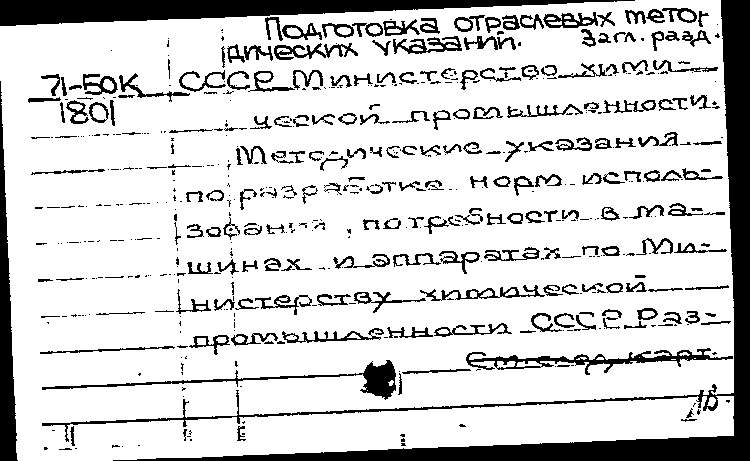 Подготовка отраслевых мето-
дических указаний. Загл. разд.
71-50К СССР. Министерство хими-
1801 ческой промышленности.
Методические указания
по разработке норм исполь-
зования, потребности в ма-
шинах и аппаратах по Ми-
нистерству химической
промышленности СССР. Раз-
См. след. карт.